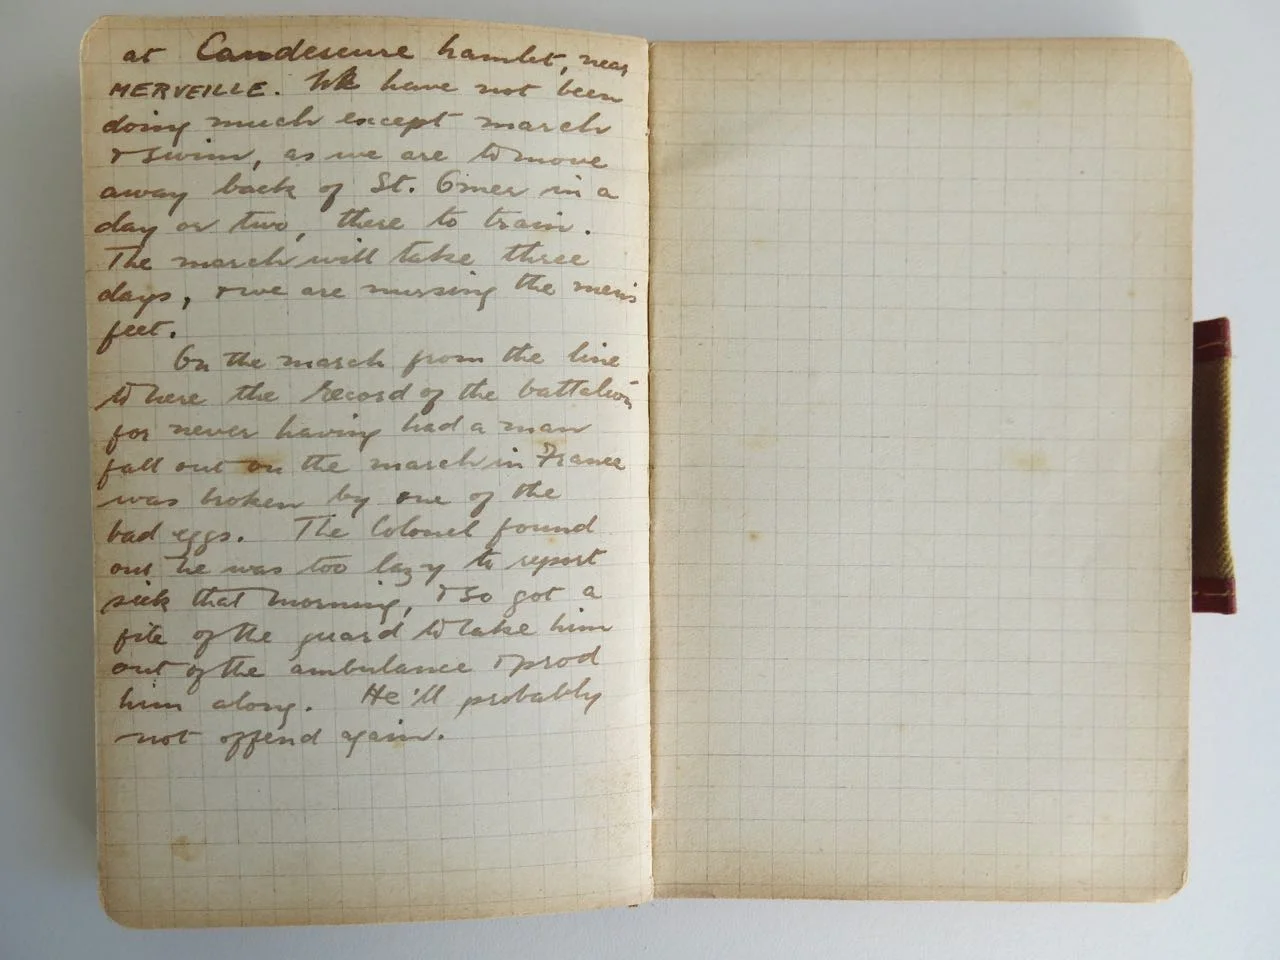 at Caudescure hamlet, near
MERVEILLE. We have not been
doing much except march
& swim, as we are to move
away back of St. Omer in a
day or two, there to train.
The march will take three
days, & we are nursing the men's
feet.
On the march from the line
to here the record of the battalion
for never having had a man
fall out on the march in France
was broken by one of the
bad eggs. The Colonel found
out he was too lazy to report
sick that morning, & so got a
file of the guard to take him
out of the ambulance & prod
him along. He'll probably
not offend again.